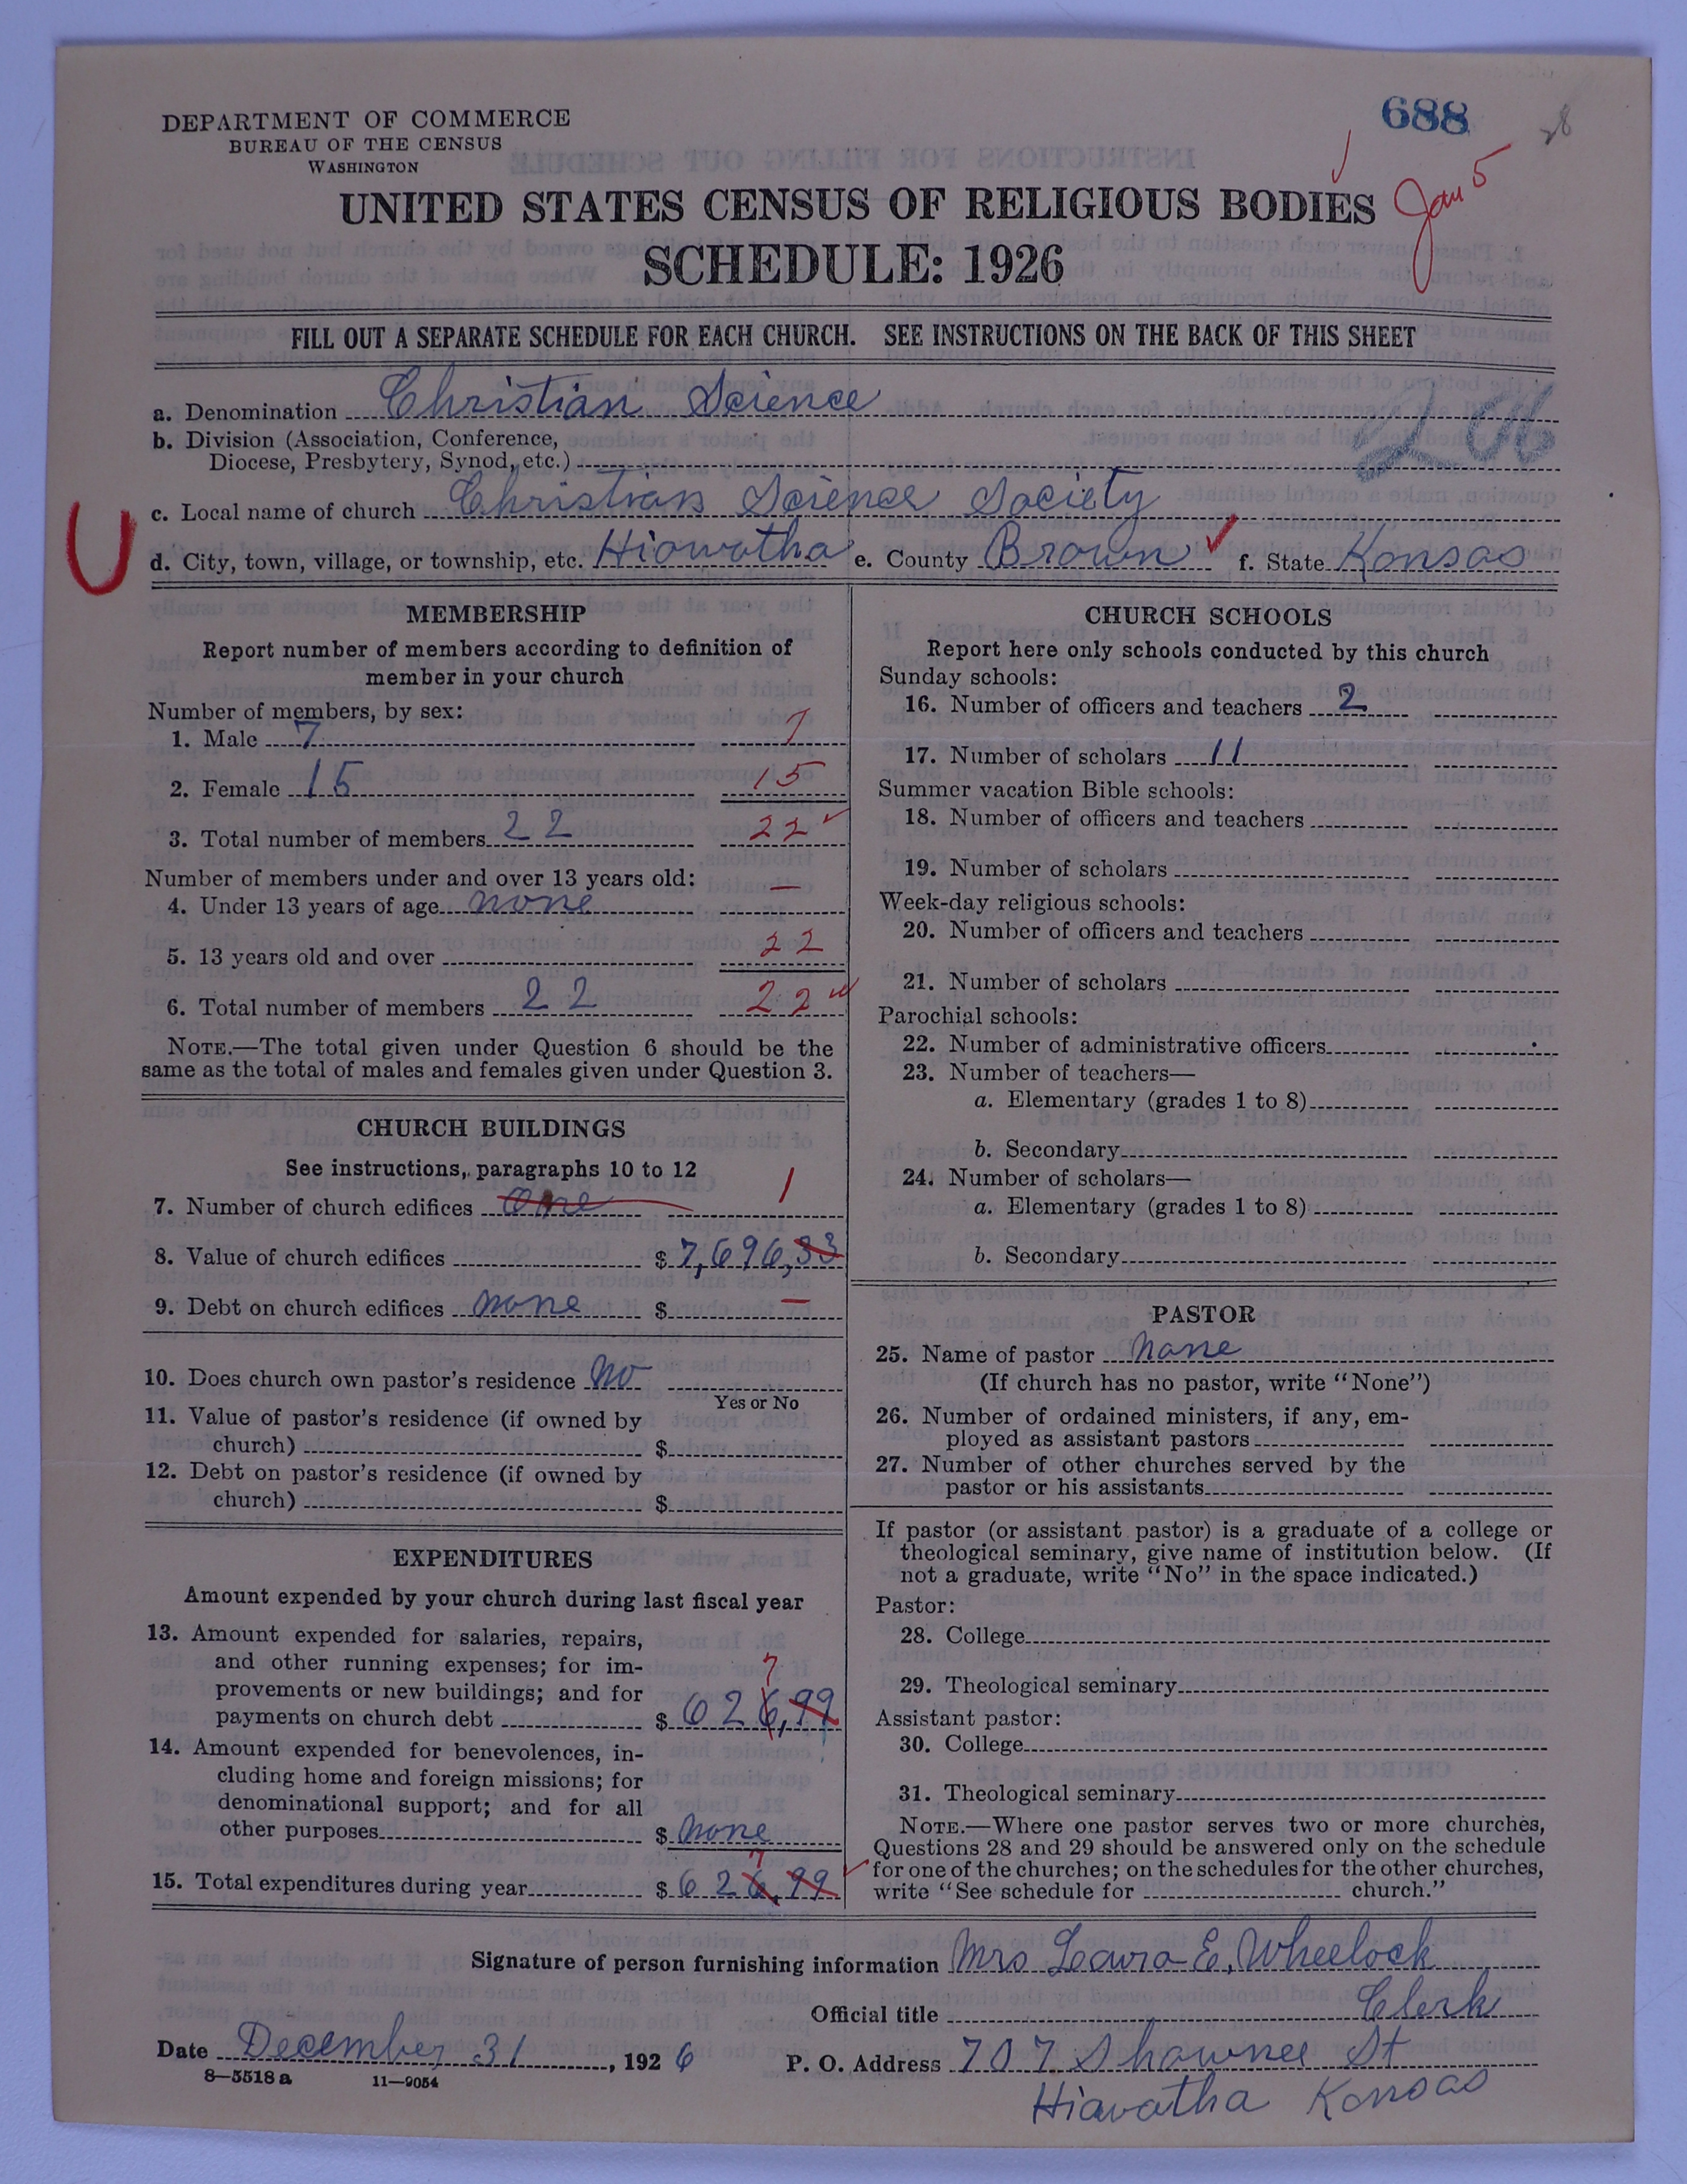 688
28
DEPARTMENT OF COMMERCE
BUREAU OF THE CENSUS
WASHINGTON
Jan 5
UNITED STATES CENSUS OF RELIGIOUS BODIES
SCHEDULE: 1926
FILL OUT A SEPARATE SCHEDULE FOR EACH CHURCH. SEE INSTRUCTIONS ON THE BACK OF THIS SHEET
a. Denomination Christian Science
b. Division (Association, Conference,
Diocese, Presbytery, Synod, etc.)
c. Local name of church Christian Science Society
U
d. City, town, village, or township, etc. Hiawatha e. County Brown ✓ f. State Kansas
MEMBERSHIP
Report number of members according to definition of
member in your church
Number of members, by sex:
1. Male 7 7
2. Female 15 15
3. Total number of members 22 22 ✓
Number of members under and over 13 years old:
4. Under 13 years of age none —
5. 13 years old and over 22
6. Total number of members 22 22 ✓
NOTE.—The total given under Question 6 should be the
same as the total of males and females given under Question 3.
CHURCH BUILDINGS
See instructions, paragraphs 10 to 12
7. Number of church edifices one 1
8. Value of church edifices $ 7,696,33
9. Debt on church edifices none $ —
10. Does church own pastor's residence no
Yes or No
11. Value of pastor's residence (if owned by
church) $
12. Debt on pastor's residence (if owned by
church) $
EXPENDITURES
Amount expended by your church during last fiscal year
13. Amount expended for salaries, repairs,
and other running expenses; for im-
provements or new buildings; and for
7
payments on church debt $ 626,99
14. Amount expended for benevolences, in-
cluding home and foreign missions; for
denominational support; and for all
other purposes $ none
7
15. Total expenditures during year $ 626,99 ✓
CHURCH SCHOOLS
Report here only schools conducted by this church
Sunday schools:
16. Number of officers and teachers 2
17. Number of scholars 11
Summer vacation Bible schools:
18. Number of officers and teachers
19. Number of scholars
Week-day religious schools:
20. Number of officers and teachers
21. Number of scholars
Parochial schools:
22. Number of administrative officers
23. Number of teachers—
a. Elementary (grades 1 to 8)
b. Secondary
24. Number of scholars—
a. Elementary (grades 1 to 8)
b. Secondary
PASTOR
25. Name of pastor None
(If church has no pastor, write "None")
26. Number of ordained ministers, if any, em-
ployed as assistant pastors
27. Number of other churches served by the
pastor or his assistants
If pastor (or assistant pastor) is a graduate of a college or
theological seminary, give name of institution below. (If
not a graduate, write "No" in the space indicated.)
Pastor:
28. College
29. Theological seminary
Assistant pastor:
30. College
31. Theological seminary
NOTE.—Where one pastor serves two or more churches,
Questions 28 and 29 should be answered only on the schedule
for one of the churches; on the schedules for the other churches,
write "See schedule for church."
Signature of person furnishing information Mrs Laura E. Wheelock
Official title Clerk
Date December 31, 1926 P. O. Address 707 Shawnee St
8—5518a 11—9054
Hiavatha Kansas